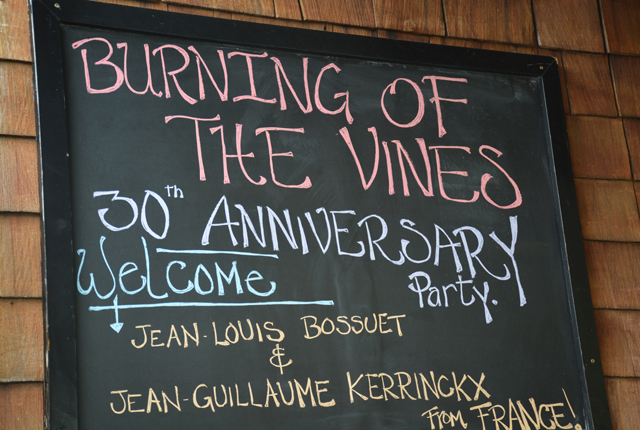 BURNING OF
THE VINES
30th ANNIVERSARY
Party.
Welcome
JEAN-LOUIS BOSSUET
&
JEAN-GUILLAUME KERRINCKX
From FRANCE!